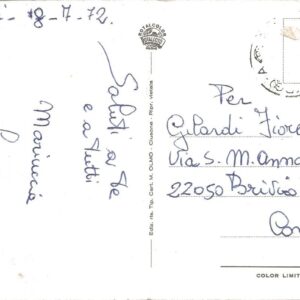 8-7-72.
ROTALCOLOR
Saluti a te
e a tutti
Mariuccia
Ediz. ris. Tip. Cart. M. OLMO - Clusone - Ripr. vietata
Per
Gilardi Fiore
Via S. M. Anna
22050 Brivio
Co
COLOR LIMIT